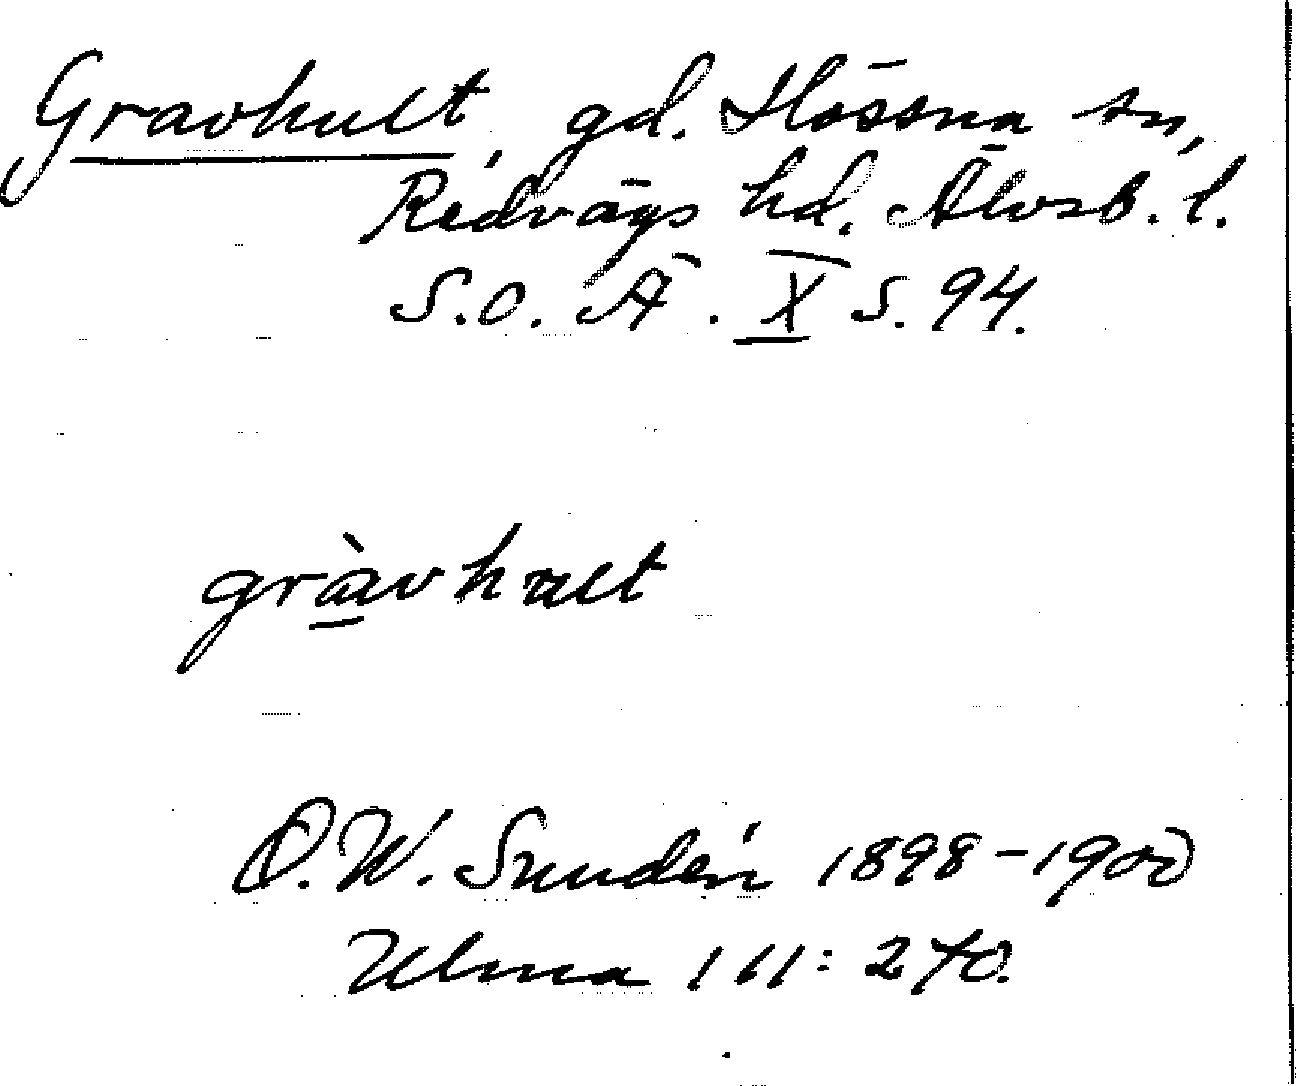 Gravhult, gd. Hössna sn,
Redvägs hd. Älvsb. l.
S.O. Ä. X s. 94.
gràvhult
O.W. Sundén 1898-1900
Ulma 111:270.